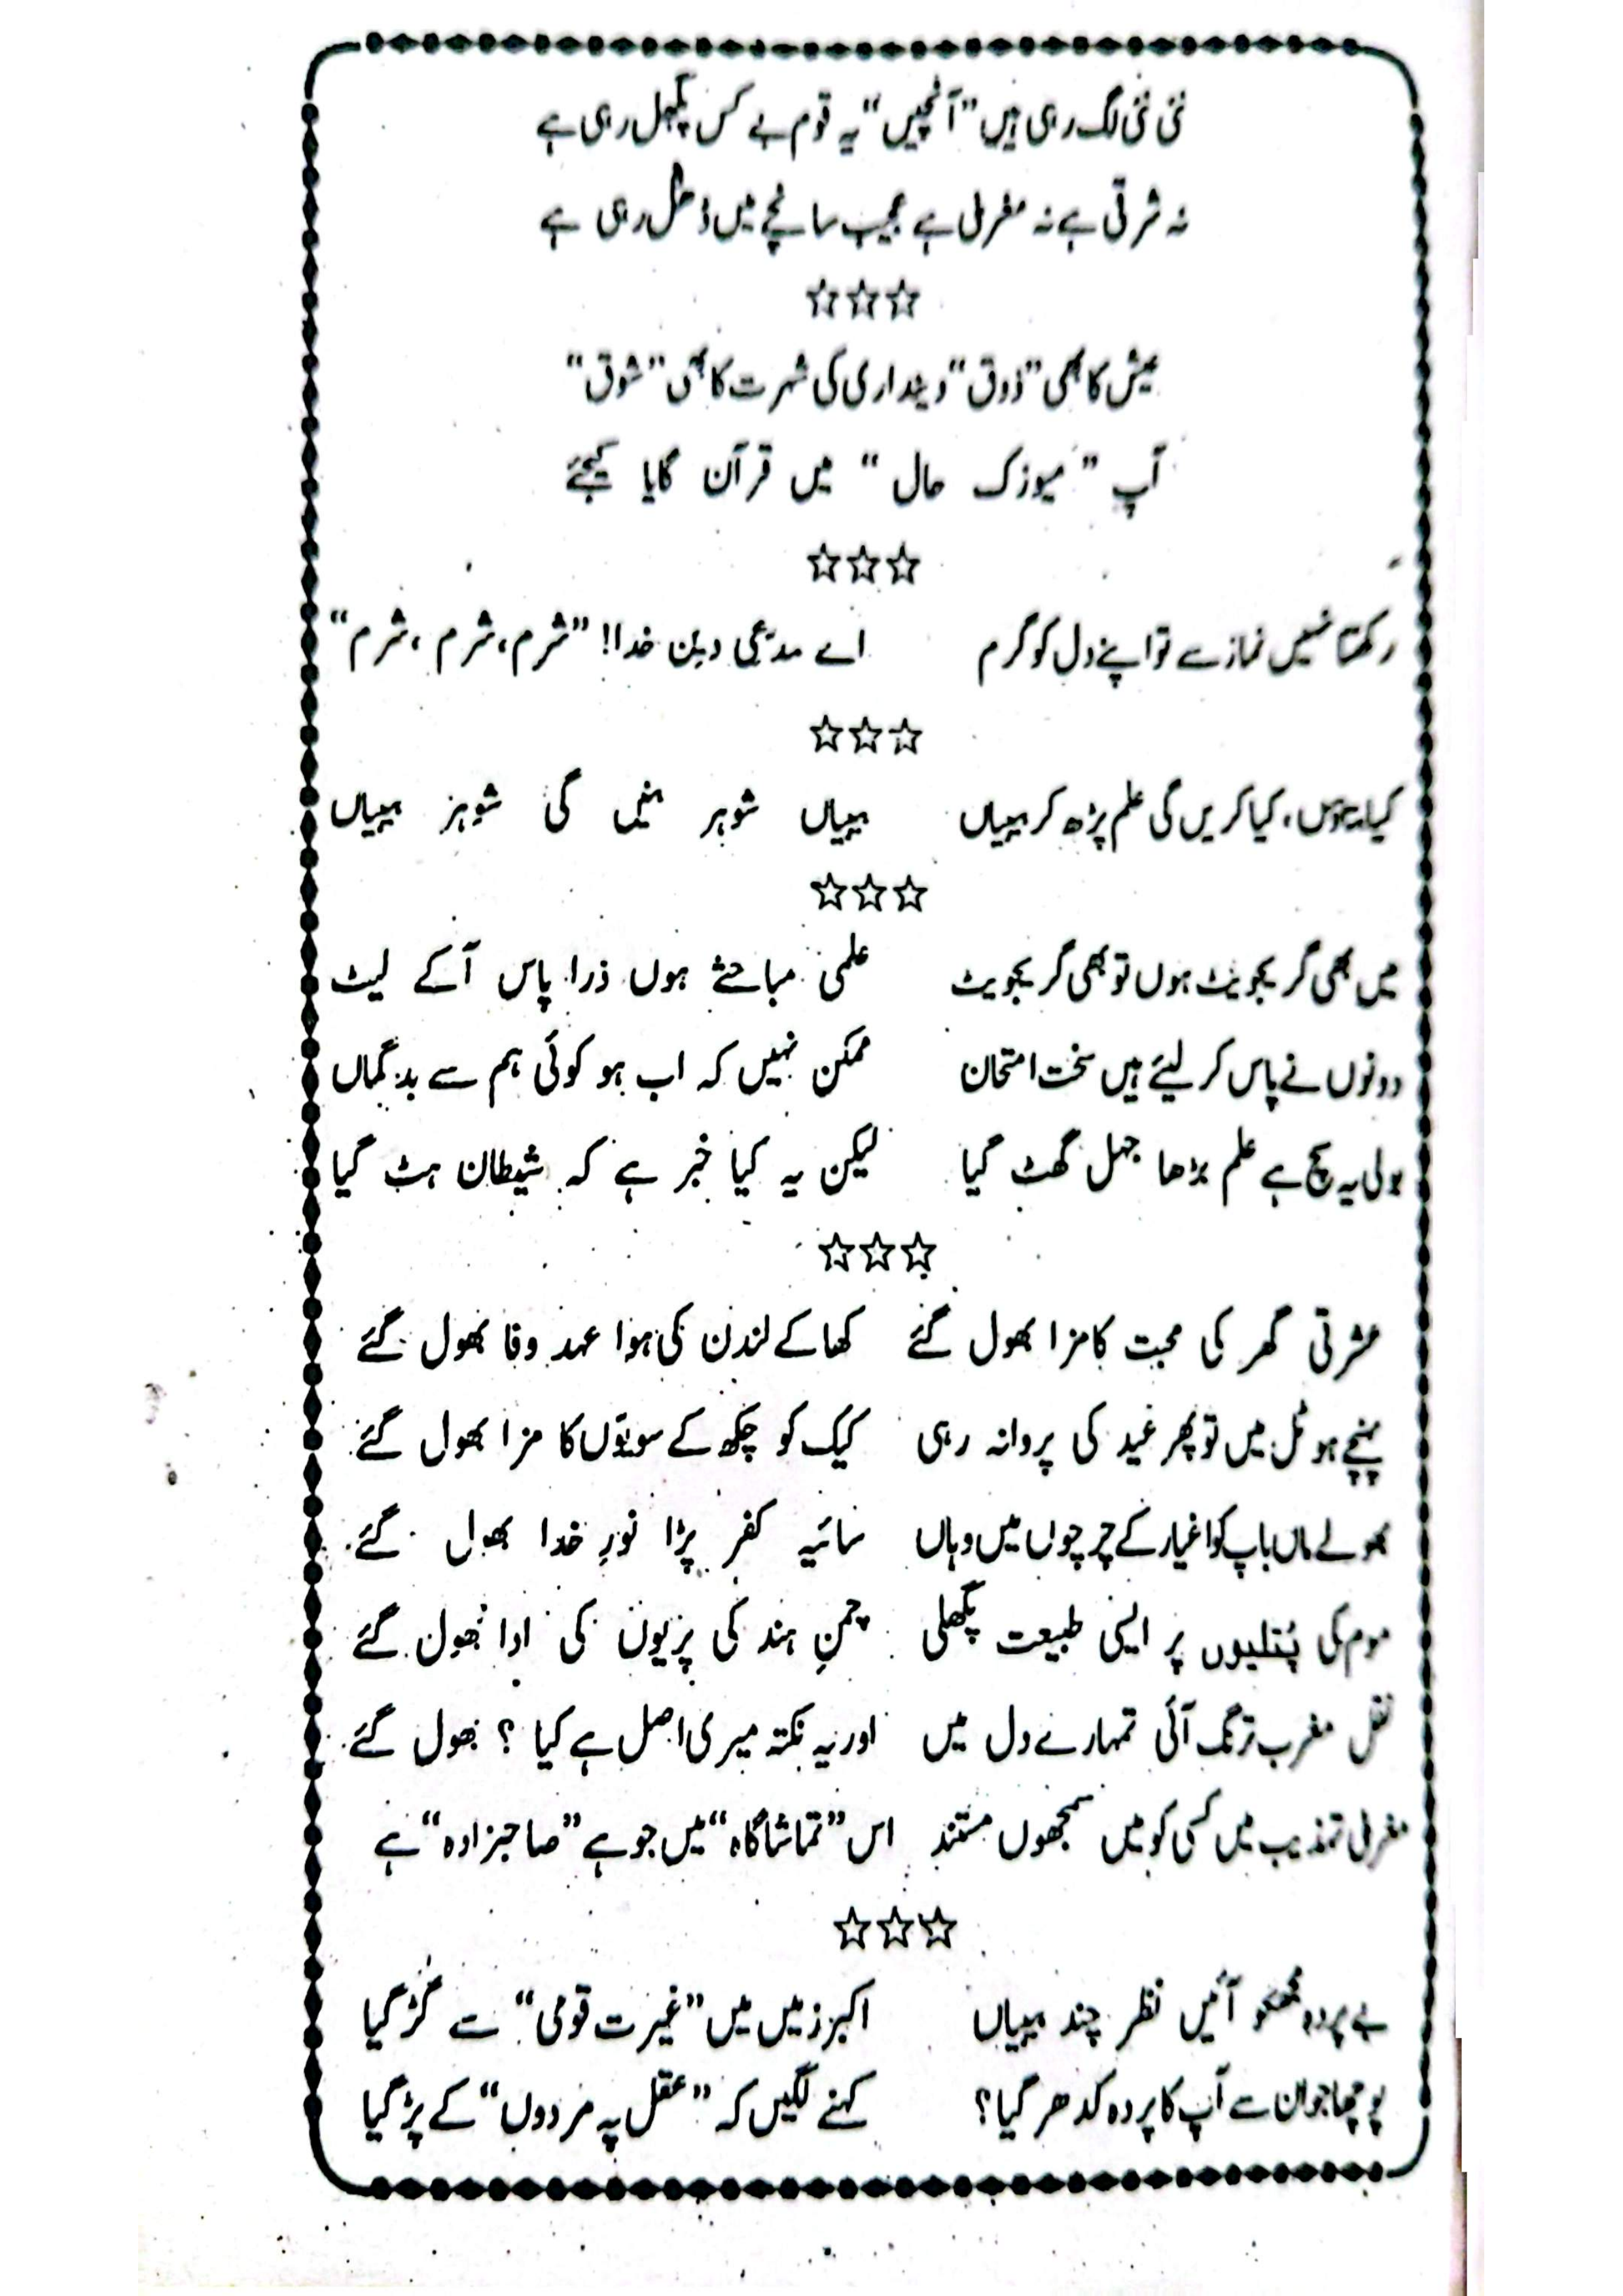 نئی نئی لگ رہی ہیں "آنچیں" یہ قوم بے کس پگھل رہی ہے
نہ شرقی ہے نہ مغربی ہے عجیب سانچے میں ڈھل رہی ہے
☆☆☆
عیش کا بھی "ذوق" دینداری کی شہرت کا بھی "شوق"
آپ "میوزک حال" میں قرآن گایا کیجئے
☆☆☆
رکھتا نہیں نماز سے تو اپنے دل کو گرم اے مدّعی دین خدا! "شرم، شرم، شرم"
☆☆☆
کیا بتاؤں، کیا کریں گی علم پڑھ کر بیبیاں بیبیاں شوہر بنیں گی شوہر بیبیاں
☆☆☆
میں بھی گریجویٹ ہوں تو بھی گریجویٹ علمی مباحثے ہوں ذرا پاس آکے لیٹ
دونوں نے پاس کر لیئے ہیں سخت امتحان ممکن نہیں کہ اب ہو کوئی ہم سے بد گماں
بولی یہ سچ ہے علم بڑھا جہل گھٹ گیا لیکن یہ کیا خبر ہے کہ شیطان ہٹ گیا
☆☆☆
عشرتی گھر کی محبت کا مزا بھول گئے کھا کے لندن کی ہوا عہد وفا بھول گئے
پہنچے ہوٹل میں تو پھر عید کی پروا نہ رہی کیک کو چکھ کے سویّوں کا مزا بھول گئے
بھولے ماں باپ کو اغیار کے چرچوں میں وہاں سائیہ کفر پڑا نورِ خدا بھول گئے
موم کی پُتلیوں پر ایسی طبیعت پگھلی چمنِ ہند کی پریوں کی ادا بھول گئے
نقل مغرب ترنگ آئی تمہارے دل میں اور یہ نکتہ میری اصل ہے کیا ؟ بھول گئے
مغربی تہذیب میں کسی کو میں سمجھوں مستند اس "تماشا گاہ" میں جو ہے "صاحبزادہ" ہے
☆☆☆
بے پردہ مجھکو آئیں نظر چند بیبیاں اکبر زمیں میں "غیرت قومی" سے گڑ گیا
پوچھا جو ان سے آپ کا پردہ کدھر گیا؟ کہنے لگیں کہ "عقل پہ مردوں" کے پڑ گیا